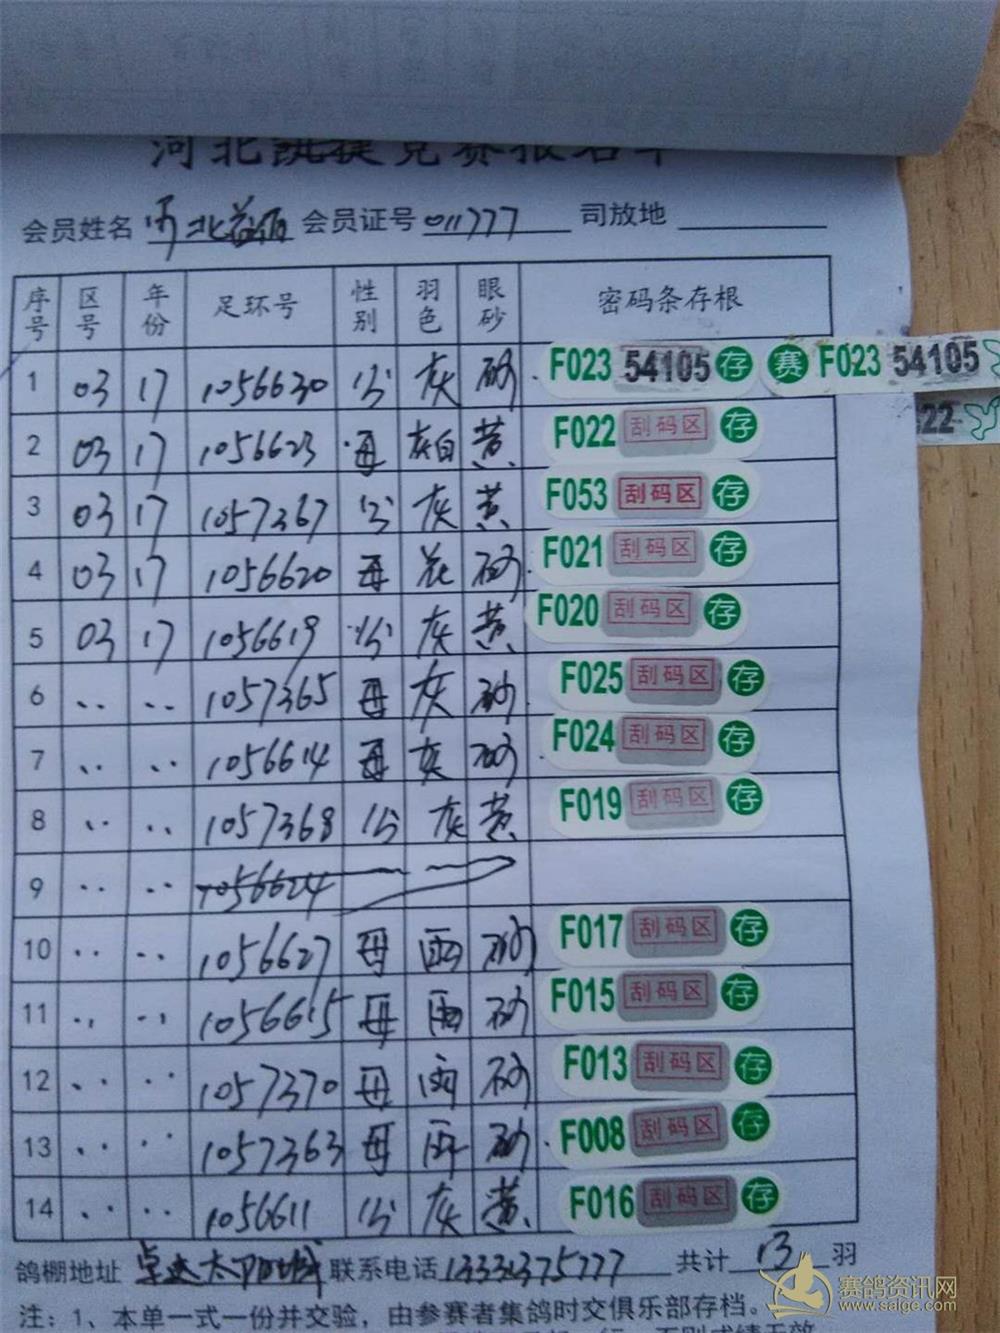 河北凯捷竞赛报名单
会员姓名 河北益恒 会员证号 011777 司放地
序号 区号 年份 足环号 性别 羽色 眼砂 密码条存根
1 03 17 1056630 公 灰 砂 F023 54105 存 赛 F023 54105
2 03 17 1056623 母 灰白 黄 F022 刮码区 存 22
3 03 17 1057367 公 灰 黄 F053 刮码区 存
4 03 17 1056620 母 花 砂 F021 刮码区 存
5 03 17 1056619 公 灰 黄 F020 刮码区 存
6 〃 〃 1057365 母 灰 砂 F025 刮码区 存
7 〃 〃 1056614 母 灰 砂 F024 刮码区 存
8 〃 〃 1057368 公 灰 黄 F019 刮码区 存
9 〃 〃 1056624
10 〃 〃 1056627 母 雨 砂 F017 刮码区 存
11 〃 〃 1056615 母 雨 砂 F015 刮码区 存
12 〃 〃 1057370 母 雨 砂 F013 刮码区 存
13 〃 〃 1057363 母 雨 砂 F008 刮码区 存
14 〃 〃 1056611 公 灰 黄 F016 刮码区 存
鸽棚地址 卓达太阳城 联系电话 13331375777 共计 13 羽
注：1、本单一式一份并交验，由参赛者集鸽时交俱乐部存档。
赛鸽资讯网
www.saige.com